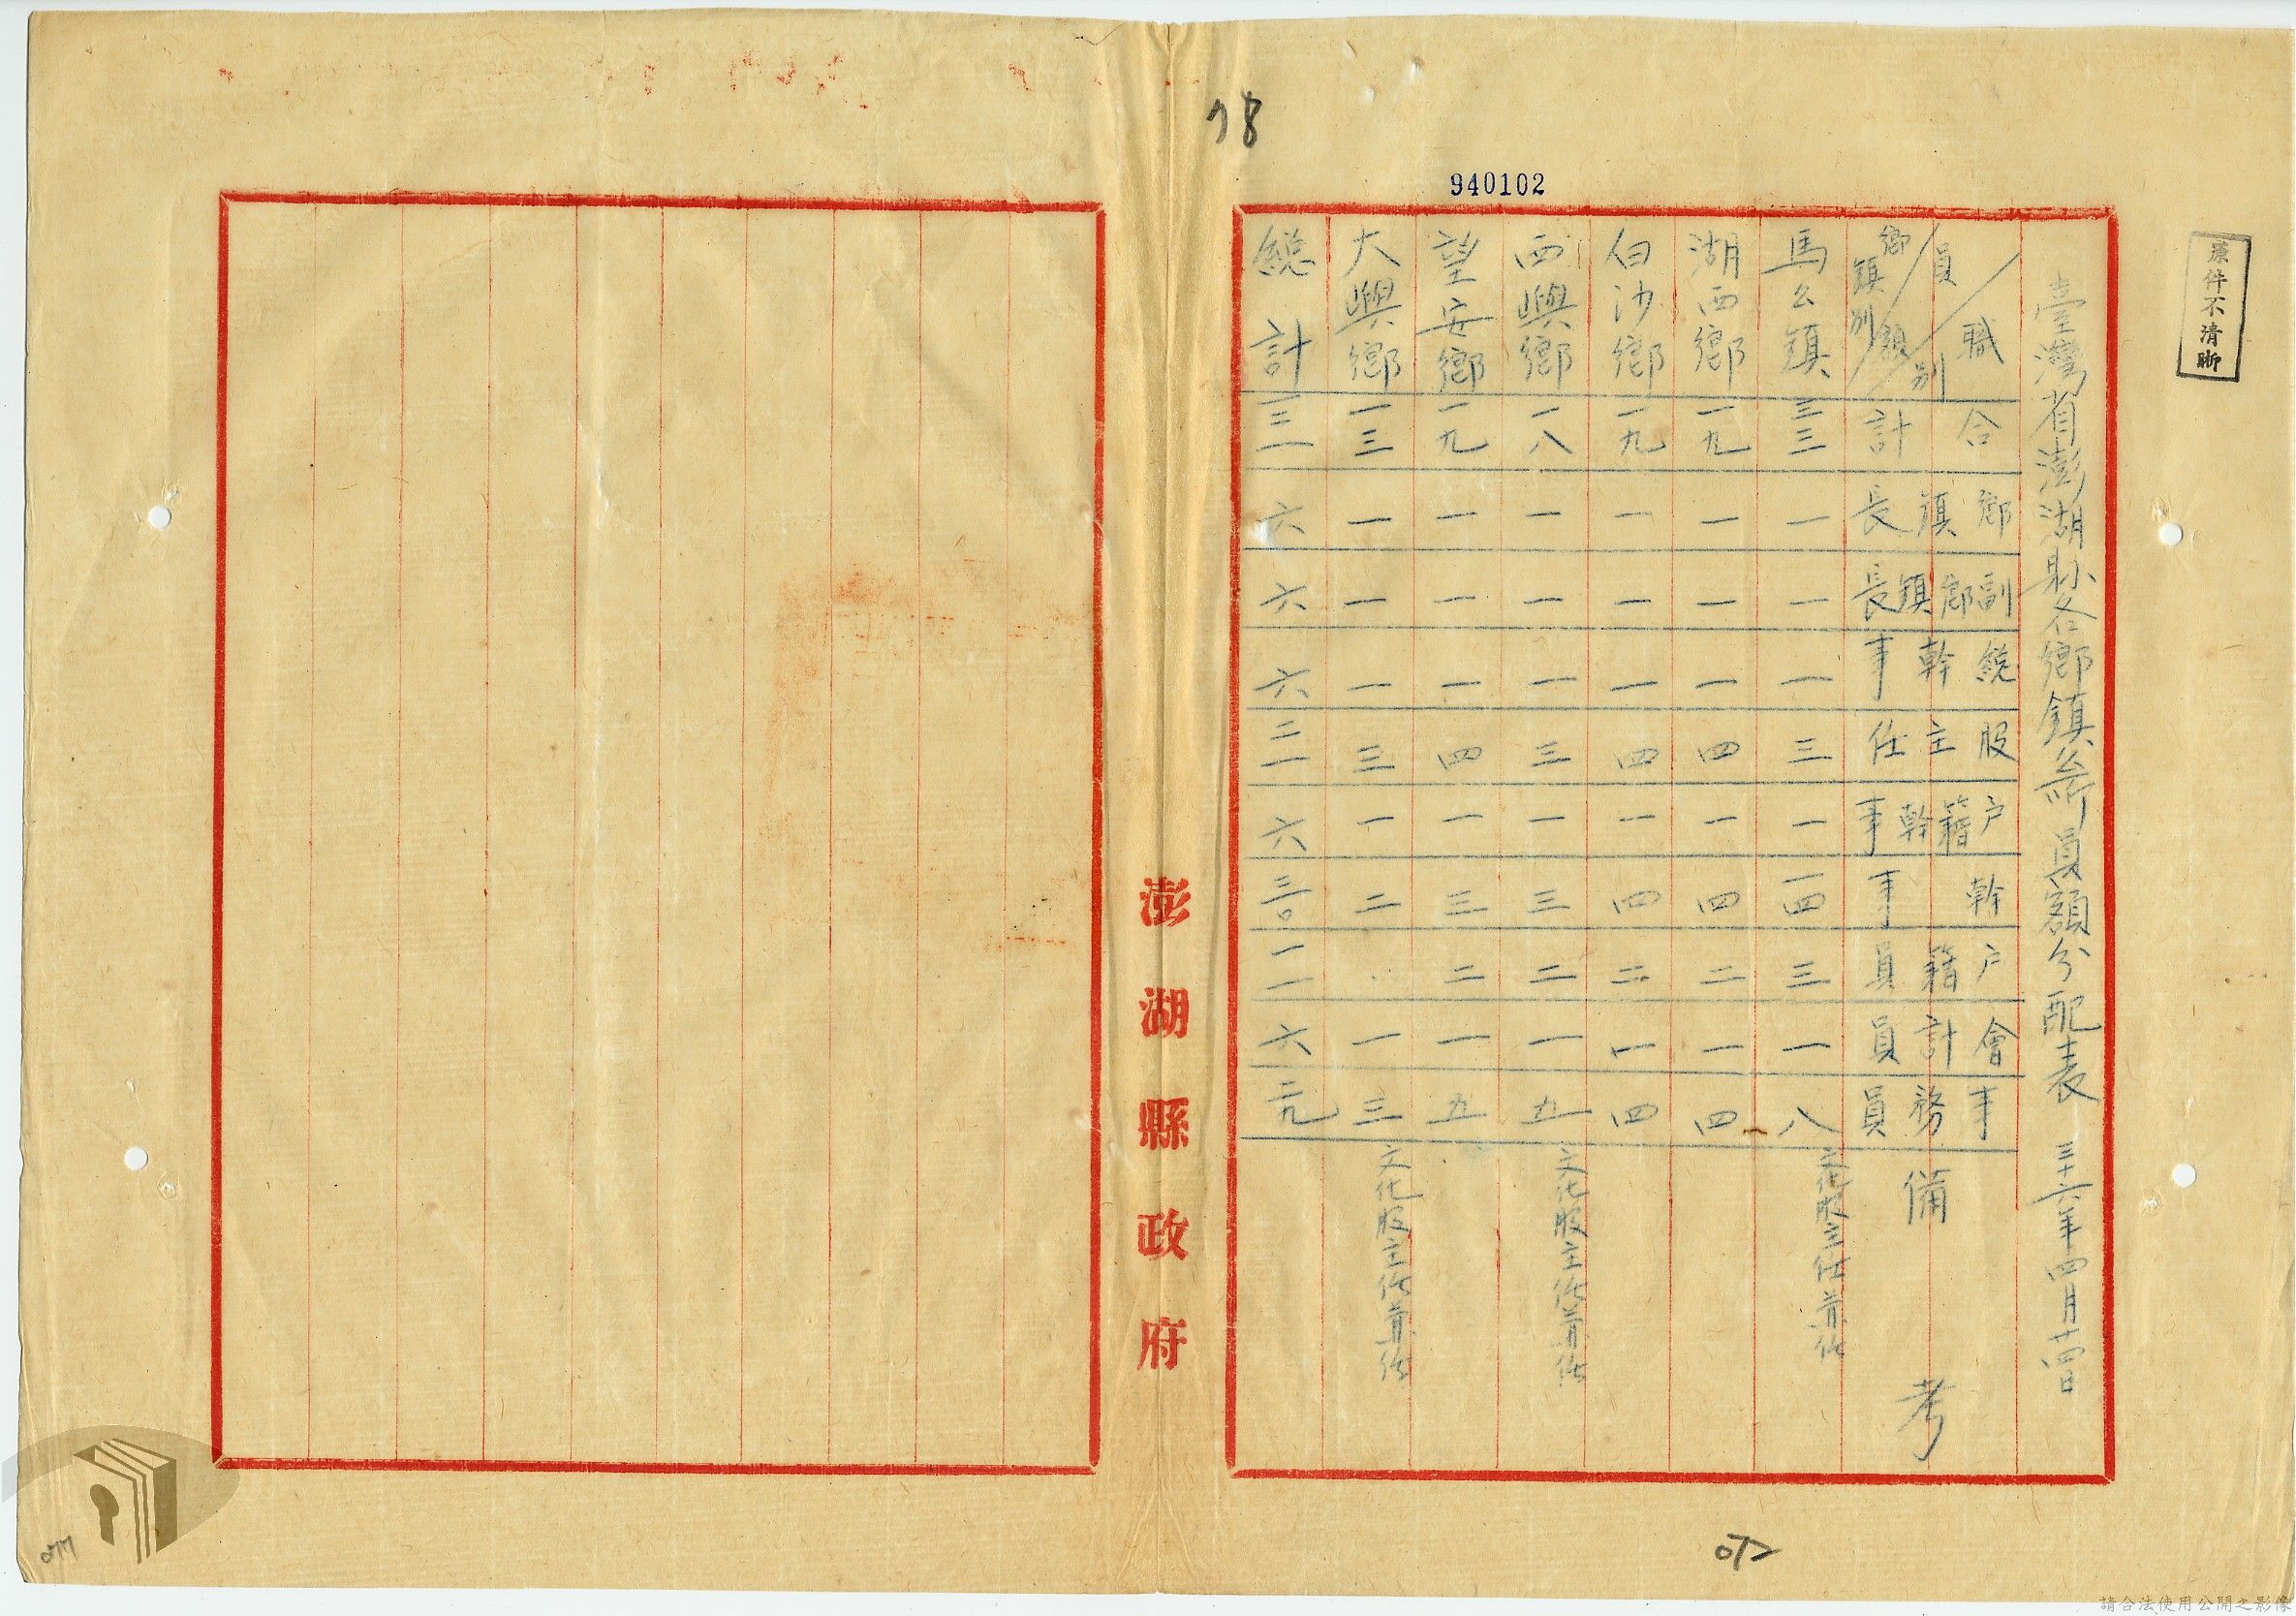 原件不清晰
78
940102
臺灣省澎湖縣各鄉鎮公所員額分配表 三十六年四月廿四日
職別 員額 鄉鎮別
合計
鄉鎮長
副鄉鎮長
總幹事
股主任
戶籍幹事
幹事
戶籍員
會計員
事務員
備考
馬公鎮 三三 一 一 一 三 一 一四 三 一 八 文化股主任兼任
湖西鄉 一九 一 一 一 四 一 四 二 一 四
白沙鄉 一九 一 一 一 四 一 四 二 一 四
西嶼鄉 一八 一 一 一 三 一 三 二 一 五 文化股主任兼任
望安鄉 一九 一 一 一 四 一 三 二 一 五
大嶼鄉 一三 一 一 一 三 一 二 一 三 文化股主任兼任
總計 六 六 六 二一 六 三〇 一一 六 二九
澎湖縣政府
077
請合法使用公開之影像